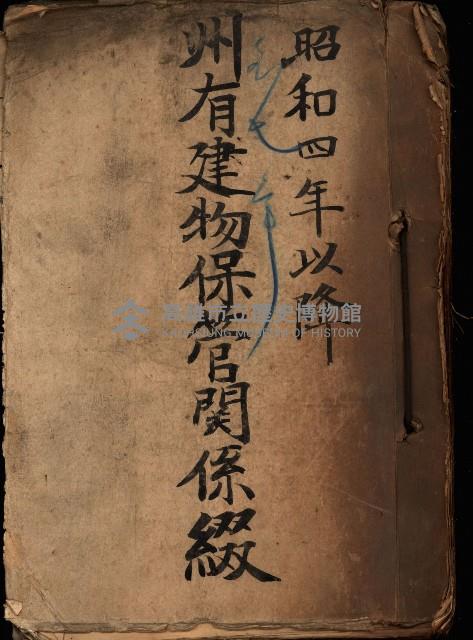 昭和四年以降
州有建物保管関係綴
高雄市立歷史博物館
KAOHSIUNG MUSEUM OF HISTORY